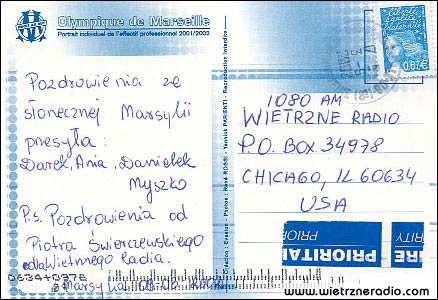 Olympique de Marseille
Portrait individuel de l'effectif professionnel 2001/2002
Pozdrowienia ze
słonecznej Marsylii
przesyła:
Darek, Ania, Danielek
Myszko
P.s. Pozdrowienia od
Piotra Świerczewskiego
dla Wietrznego Radia.
Marsylia 09.05.2002
0634+0376
Création : Evasion - Photos : René ROSSI - Yannick PARIENTI - Reproduction Interdite
0,67€
1080 AM
WIETRZNE RADIO
P.O. BOX 34978
CHICAGO, IL 60634
USA
PRIORITAI
PRIOR
www.wietrzneradio.com